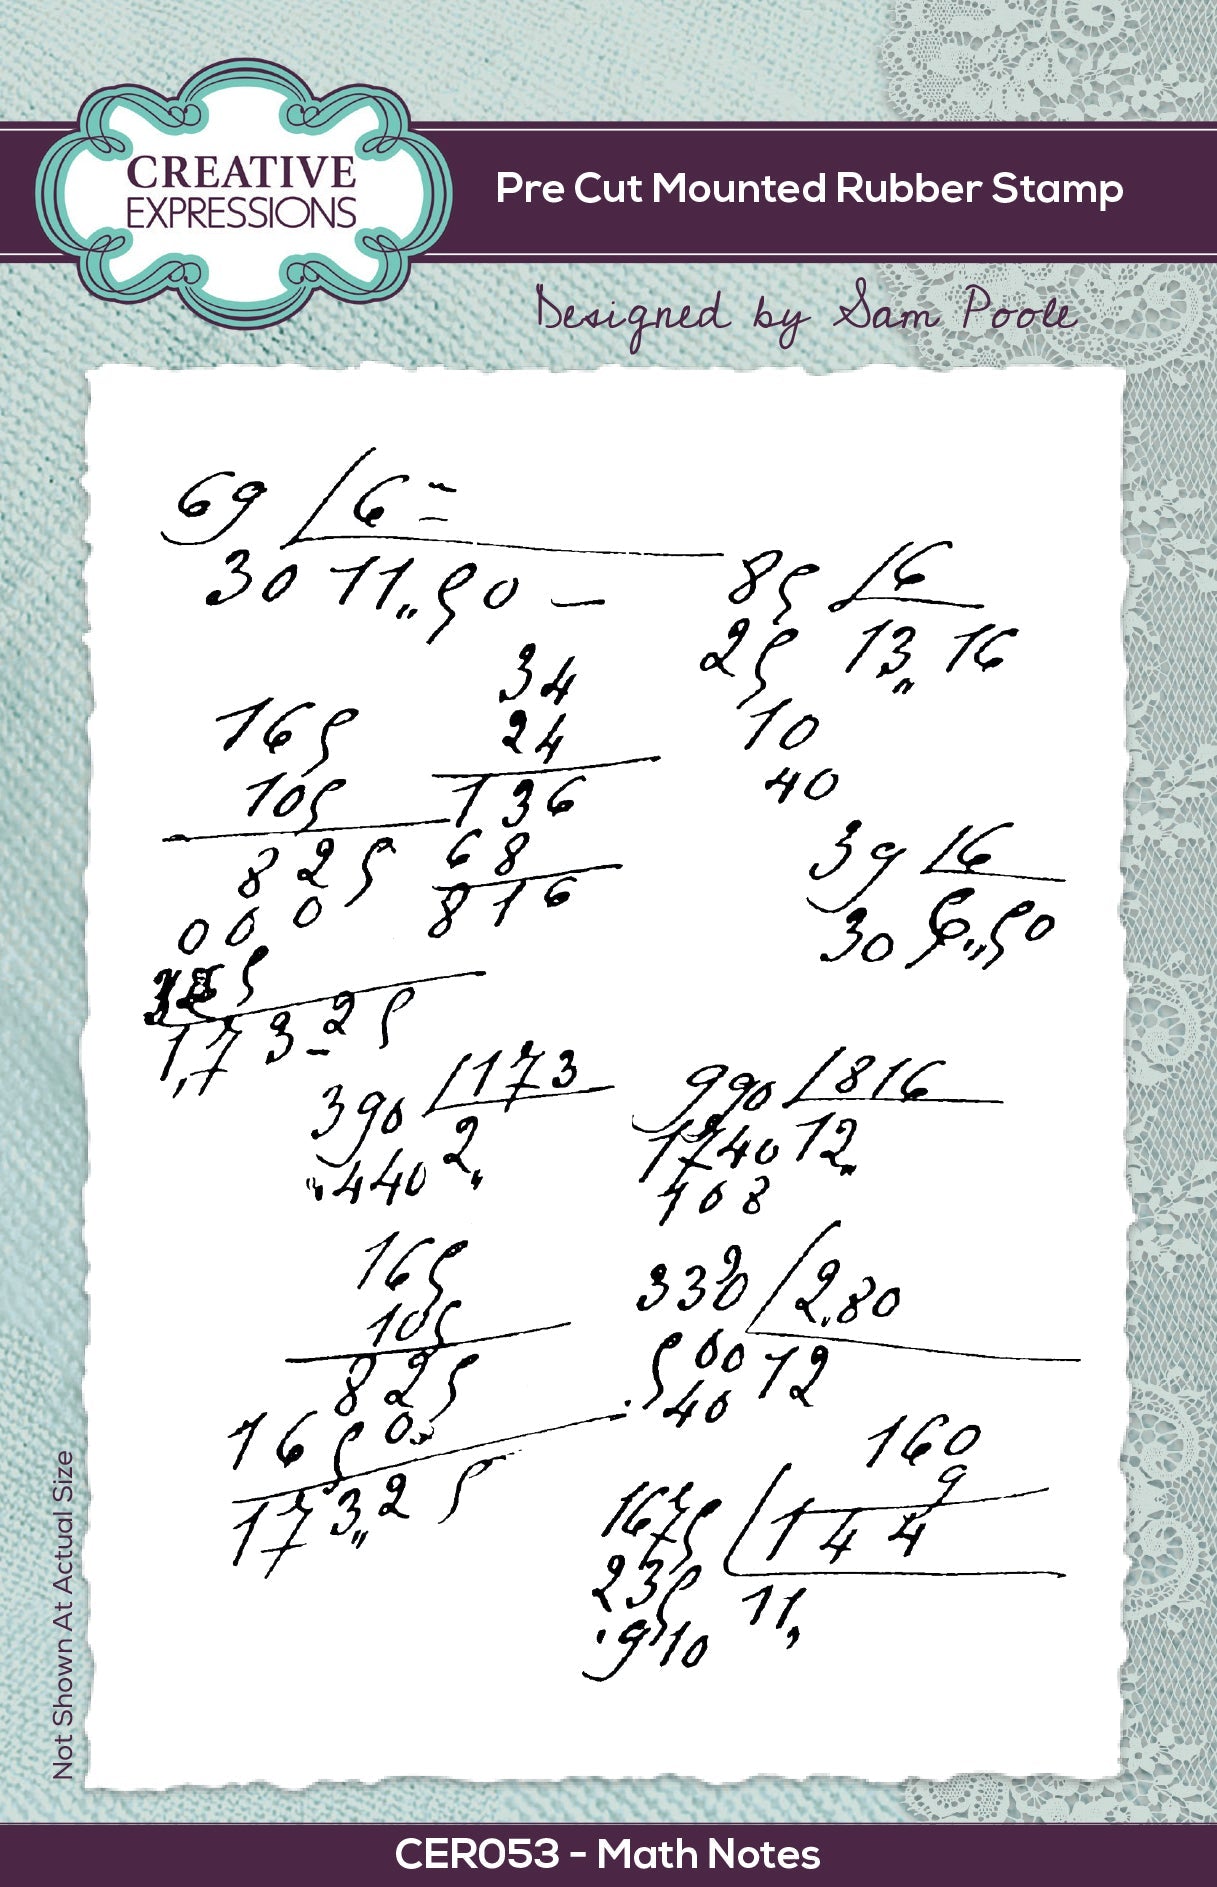 CREATIVE
EXPRESSIONS
Pre Cut Mounted Rubber Stamp
Designed by Sam Poole
69 6 =
30 11,,50 —
85 6
25 13,, 16
10
40
34
24
136
68
816
165
105
825
000
5
173-25
39 6
30 6,,50
390 173
440 2,,
990 816
1740 12,,
108
165
105
825
1650
173,,25
330 2.80
500 12
40
160
9
1675 144
235 11,
910
Not Shown At Actual Size
CER053 - Math Notes